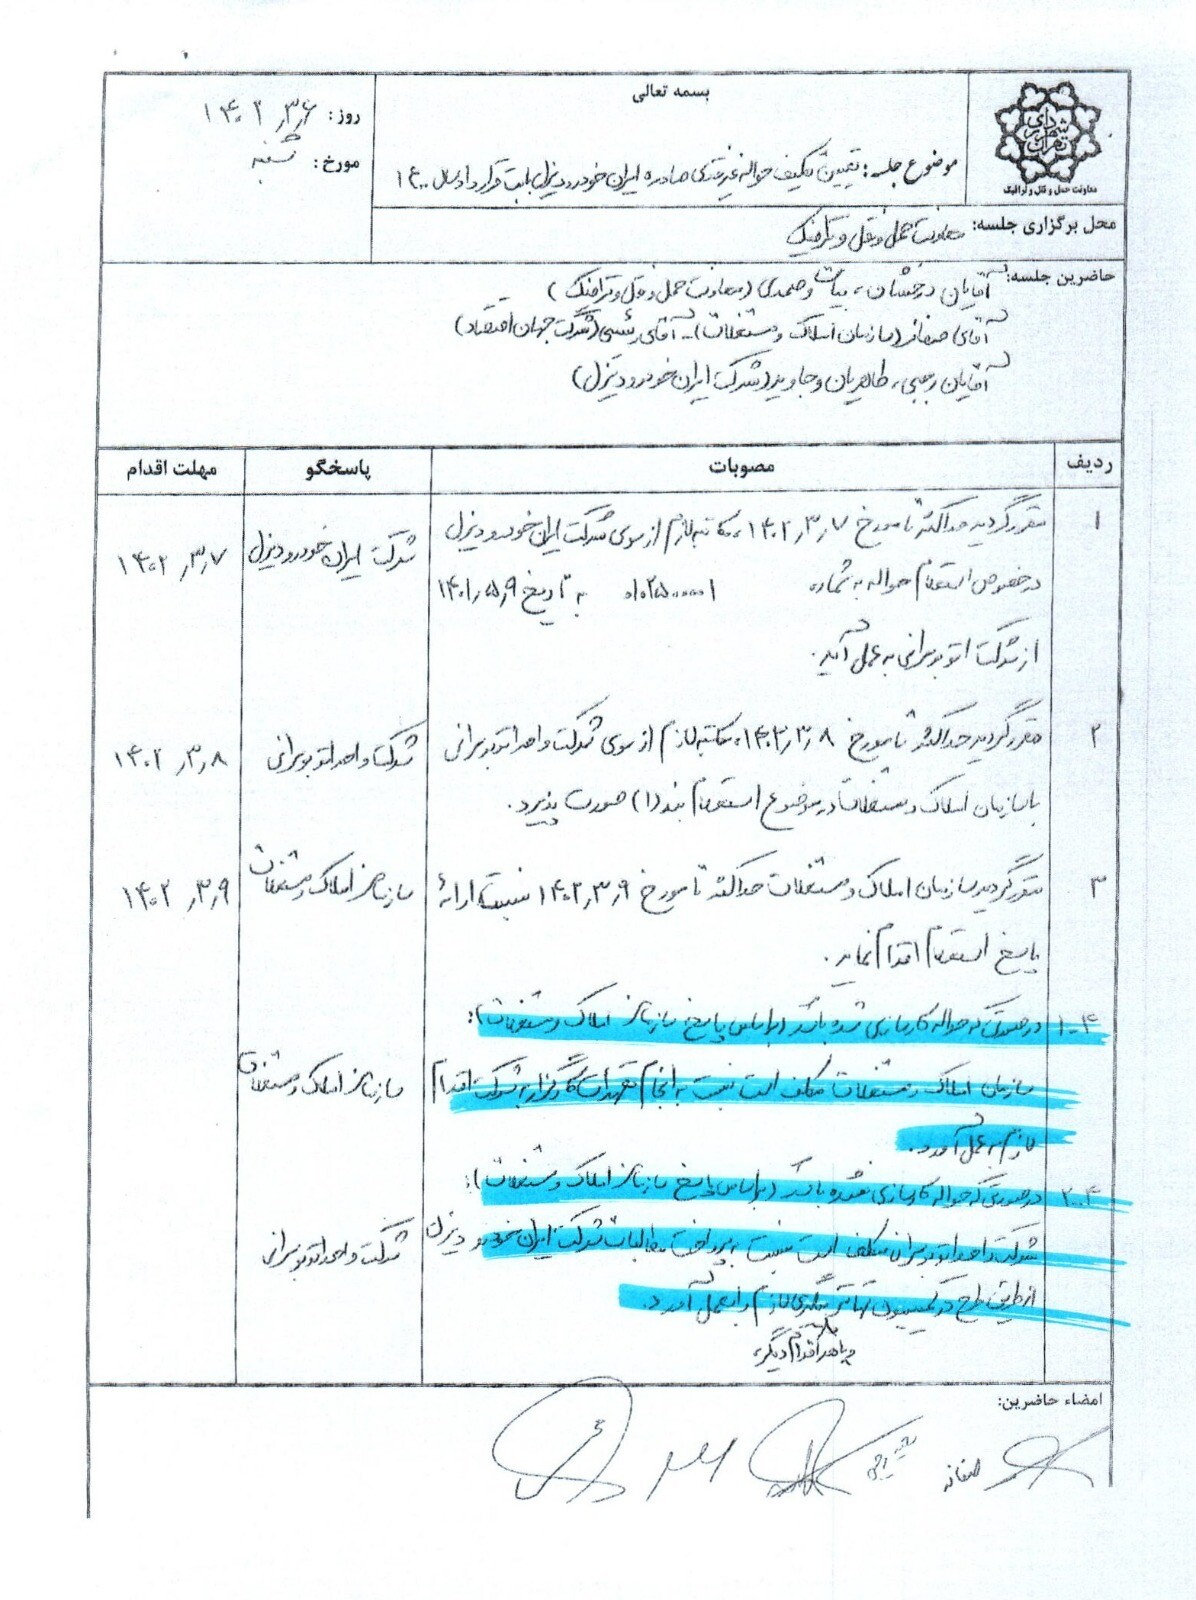 بسمه تعالی
شهرداری تهران
معاونت حمل و نقل و ترافیک
روز: ۱۴۰۲٫۳٫۶
مورخ: شنبه
موضوع جلسه: تعیین تکلیف حواله غیرنقدی صادره ایران خودرو دیزل بابت قرارداد سال ۱۴۰۰
محل برگزاری جلسه: معاونت حمل و نقل و ترافیک
حاضرین جلسه: آقایان درخشان، بیات و صمدی (معاونت حمل و نقل و ترافیک)
آقای صفائی (سازمان املاک و مستغلات) - آقای رئیسی (شرکت جهان اقتصاد)
آقایان رجبی، طاهریان و جاوید (شرکت ایران خودرو دیزل)
ردیف مصوبات پاسخگو مهلت اقدام
۱ مقرر گردید حداکثر تا مورخ ۱۴۰۲٫۳٫۷، مکاتبه لازم از سوی شرکت ایران خودرو دیزل شرکت ایران خودرو دیزل ۱۴۰۲٫۳٫۷
در خصوص استعلام حواله به شماره به تاریخ ۱۴۰۱٫۵٫۹
از شرکت اتوبوسرانی به عمل آید.
۲ مقرر گردید حداکثر تا مورخ ۱۴۰۲٫۳٫۸، مکاتبه لازم از سوی شرکت واحد اتوبوسرانی شرکت واحد اتوبوسرانی ۱۴۰۲٫۳٫۸
با سازمان املاک و مستغلات در موضوع استعلام بند (۱) صورت پذیرد.
۳ مقرر گردید سازمان املاک و مستغلات حداکثر تا مورخ ۱۴۰۲٫۳٫۹ نسبت ارائه سازمان املاک و مستغلات ۱۴۰۲٫۳٫۹
پاسخ استعلام اقدام نماید.
۴-۱ در صورتی که حواله کارسازی شده باشد (براساس پاسخ سازمان املاک و مستغلات):
سازمان املاک و مستغلات مکلف است نسبت به انجام تعهدات کارگزار به شرکت اقدام سازمان املاک و مستغلات
لازم به عمل آورد.
۴-۲ در صورتی که حواله کارسازی نشده باشد (براساس پاسخ سازمان املاک و مستغلات):
شرکت واحد اتوبوسرانی مکلف است نسبت به پرداخت مطالبات شرکت ایران خودرو دیزل شرکت واحد اتوبوسرانی
از طریق طرح در کمیسیون تهاتر پیگیری لازم را بعمل آورد.
و یا هر اقدام دیگر
امضاء حاضرین: